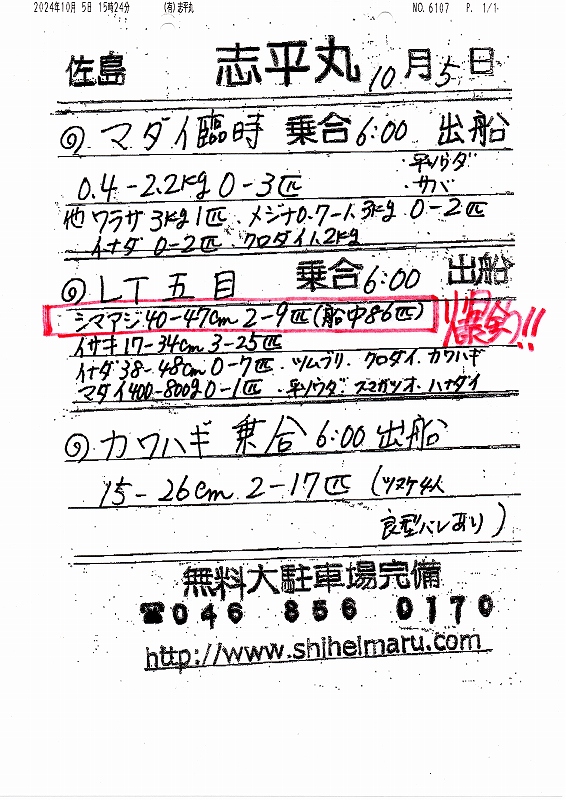 2024年10月 5日 15時24分 (有)志平丸 NO. 6107 P. 1/1
佐島 志平丸 10月5日
マダイ臨時 乗合6:00 出船
0.4-2.2kg 0-3匹 ・平ソウダ
・サバ
他ワラサ3kg1匹、メジナ0.7-1.3kg 0-2匹
イナダ 0-2匹 クロダイ1.2kg
LT五目 乗合6:00 出船
シマアジ40-47cm 2-9匹(船中86匹) 爆釣!!
イサキ17-34cm 3-25匹
イナダ38-48cm 0-7匹・ツムブリ、クロダイ、カワハギ
マダイ400-800g 0-1匹・平ソウダ、スマガツオ、ハナダイ
カワハギ 乗合 6:00 出船
15-26cm 2-17匹 (ツヌケ4人
良型バレあり)
無料大駐車場完備
☎046 856 0170
http://www.shiheimaru.com